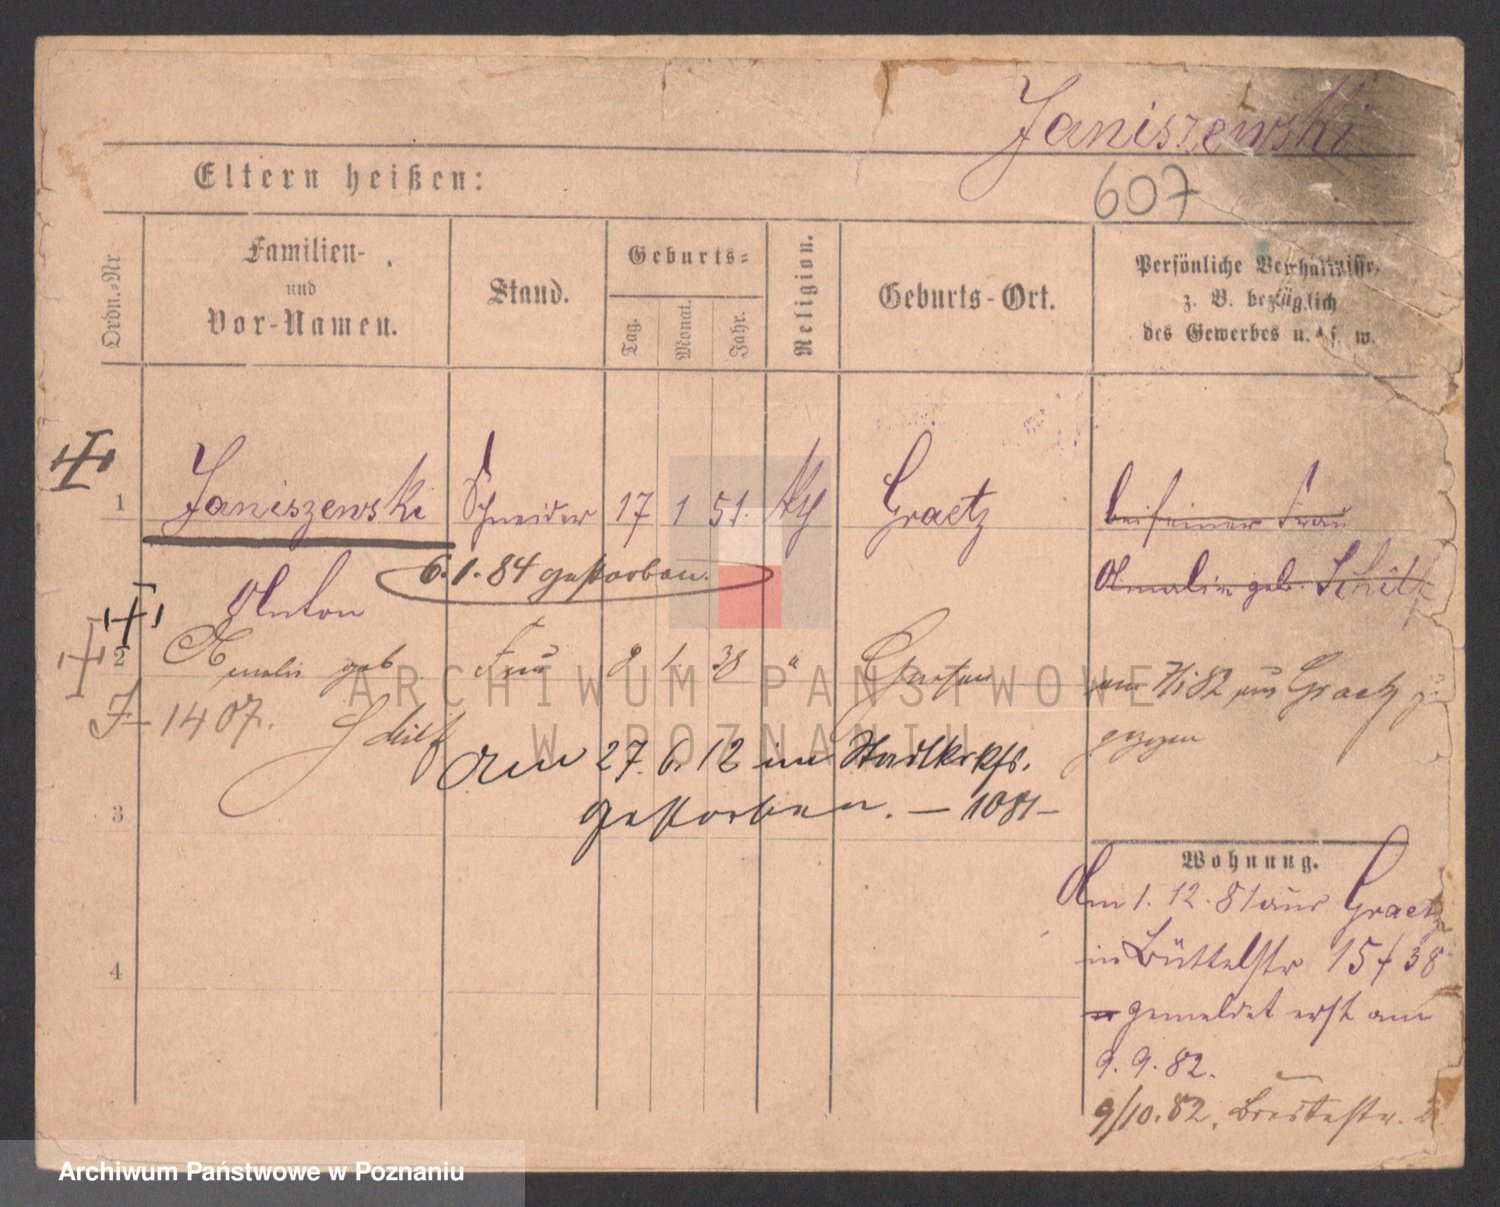 Janiszewski
607
Eltern heißen:
Ordn.-Nr
Familien-
und
Vor-Namen.
Stand.
Geburts-
Tag.
Monat.
Jahr.
Religion.
Geburts-Ort.
Persönliche Verhältnisse,
z. B. bezüglich
des Gewerbes u. s. w.
1
Janiszewski
Schneider
17
1
51.
Graetz
bei seiner Frau
Anton
6.1.84 gestorben.
Amalie geb. Schilf
2
Amalie geb
Frau
1.
38
"
am 7/1 82 aus Graetz
gezogen
1407.
Schilf
Am 27. 6. 12 im Stadtkrkhs.
gestorben. — 1081 —
3
Wohnung.
Am 1. 12. 81 aus Graetz
in Büttelstr 15 / 38
gemeldet erst am
9. 9. 82.
9/10. 82. Breitestr. 2
4
ARCHIWUM PAŃSTWOWE
W POZNANIU
Archiwum Państwowe w Poznaniu